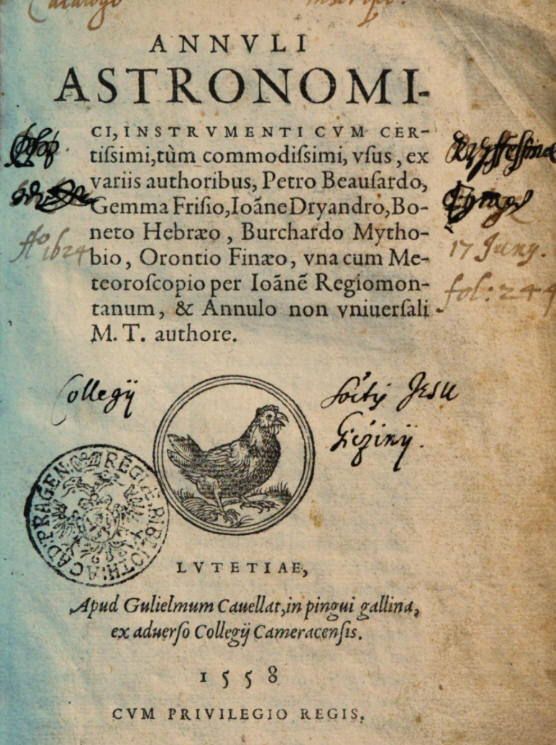 Catalogo inscript.
ANNVLI
ASTRONOMI-
CI, INSTRVMENTI CVM CER-
tiſsimi, tùm commodiſsimi, vſus, ex
variis authoribus, Petro Beauſardo,
Gemma Friſio, Ioãne Dryandro, Bo-
neto Hebræo, Burchardo Mytho-
bio, Orontio Finæo, vna cum Me-
teoroſcopio per Ioãnẽ Regiomon-
tanum, & Annulo non vniuerſali
M. T. authore.
Aº 1624
17 Juny.
fol: 244
Collegij Socitįs JESU
Giczinij.
ACAD: PRAGEN: REGIÆ BIBLIOTH:
LVTETIAE,
Apud Gulielmum Cauellat, in pingui gallina,
ex aduerſo Collegij Cameracenſis.
1558
CVM PRIVILEGIO REGIS.